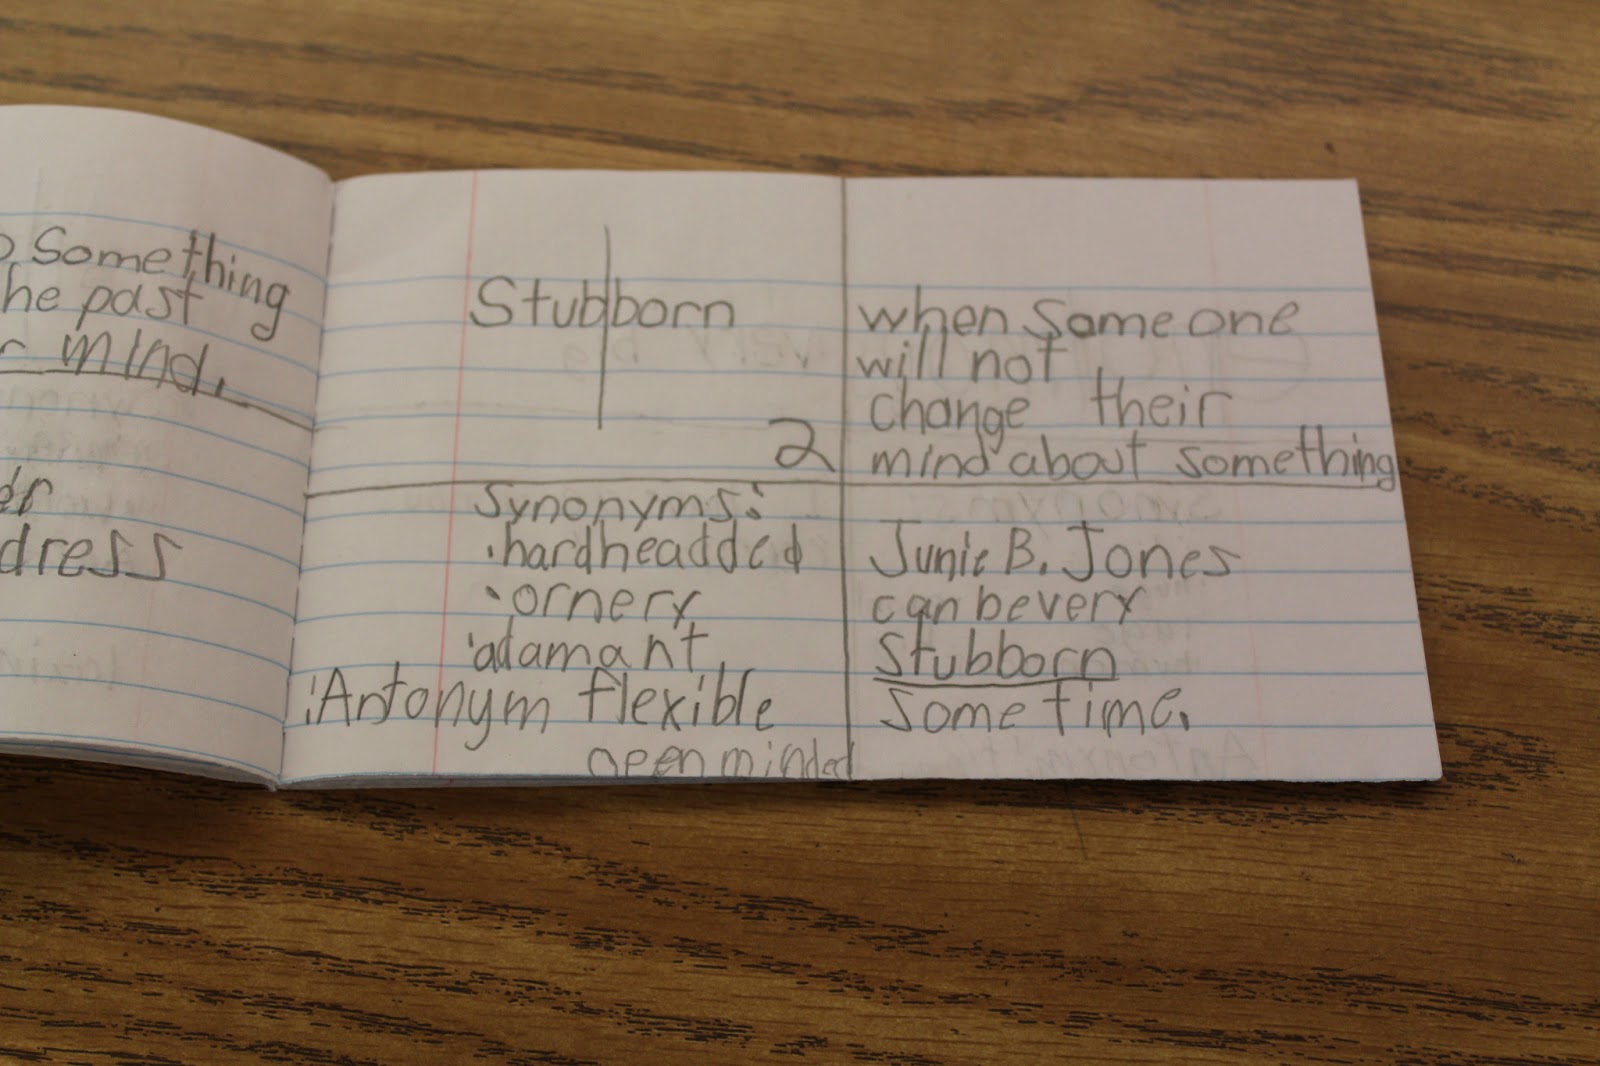 Something
he past
mind.
dress
Stubborn
2
when someone
will not
change their
mind about something
Synonyms:
hardheadded
ornery
adamant
Antonym flexible
open minded
Junie B. Jones
can be very
Stubborn
some time.